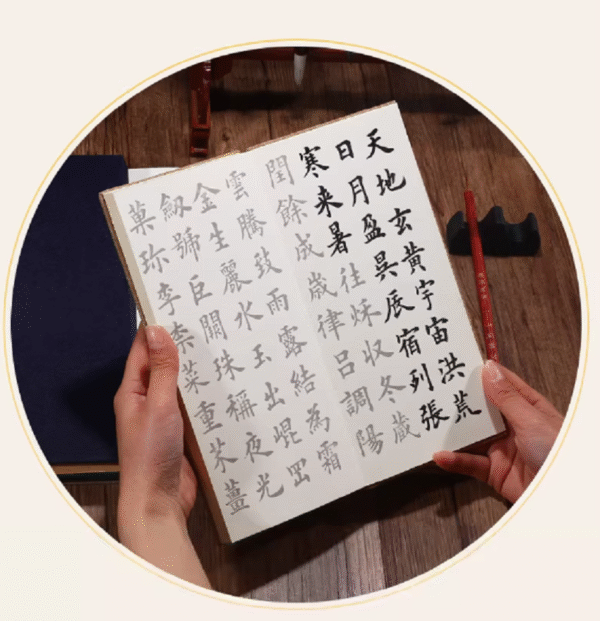 天地玄黃宇宙洪荒
日月盈昃辰宿列張
寒来暑往秋收冬藏
閏餘成歲律呂調陽
雲騰致雨露結為霜
金生麗水玉出崐岡
劔號巨闕珠稱夜光
菓珎李柰菜重芥薑